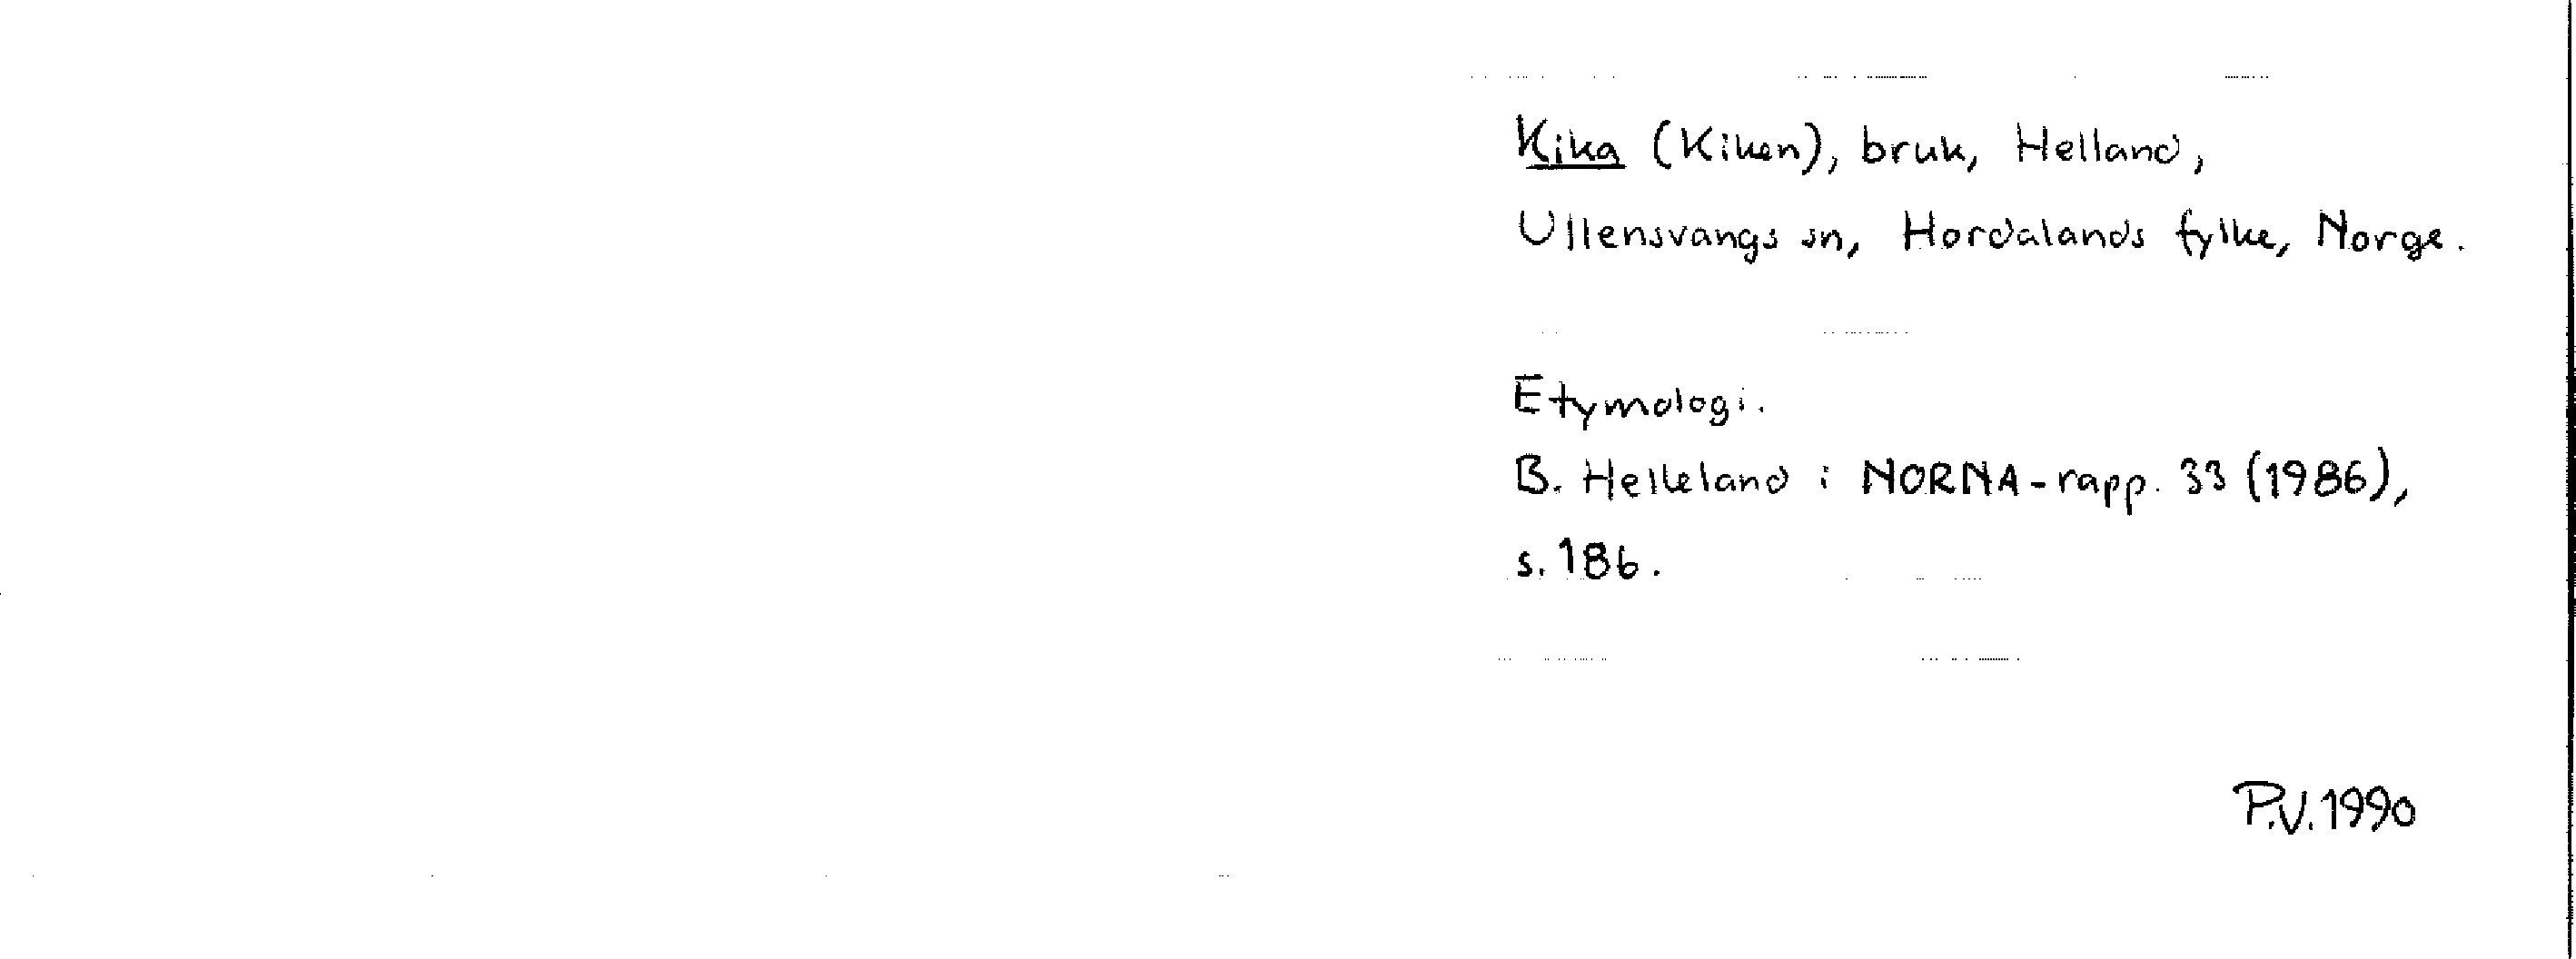 Kika (Kiken), bruk, Helland,
Ullensvangs sn, Hordalands fylke, Norge.
Etymologi.
B. Helleland i NORNA-rapp. 33 (1986),
s. 186.
P.V. 1990